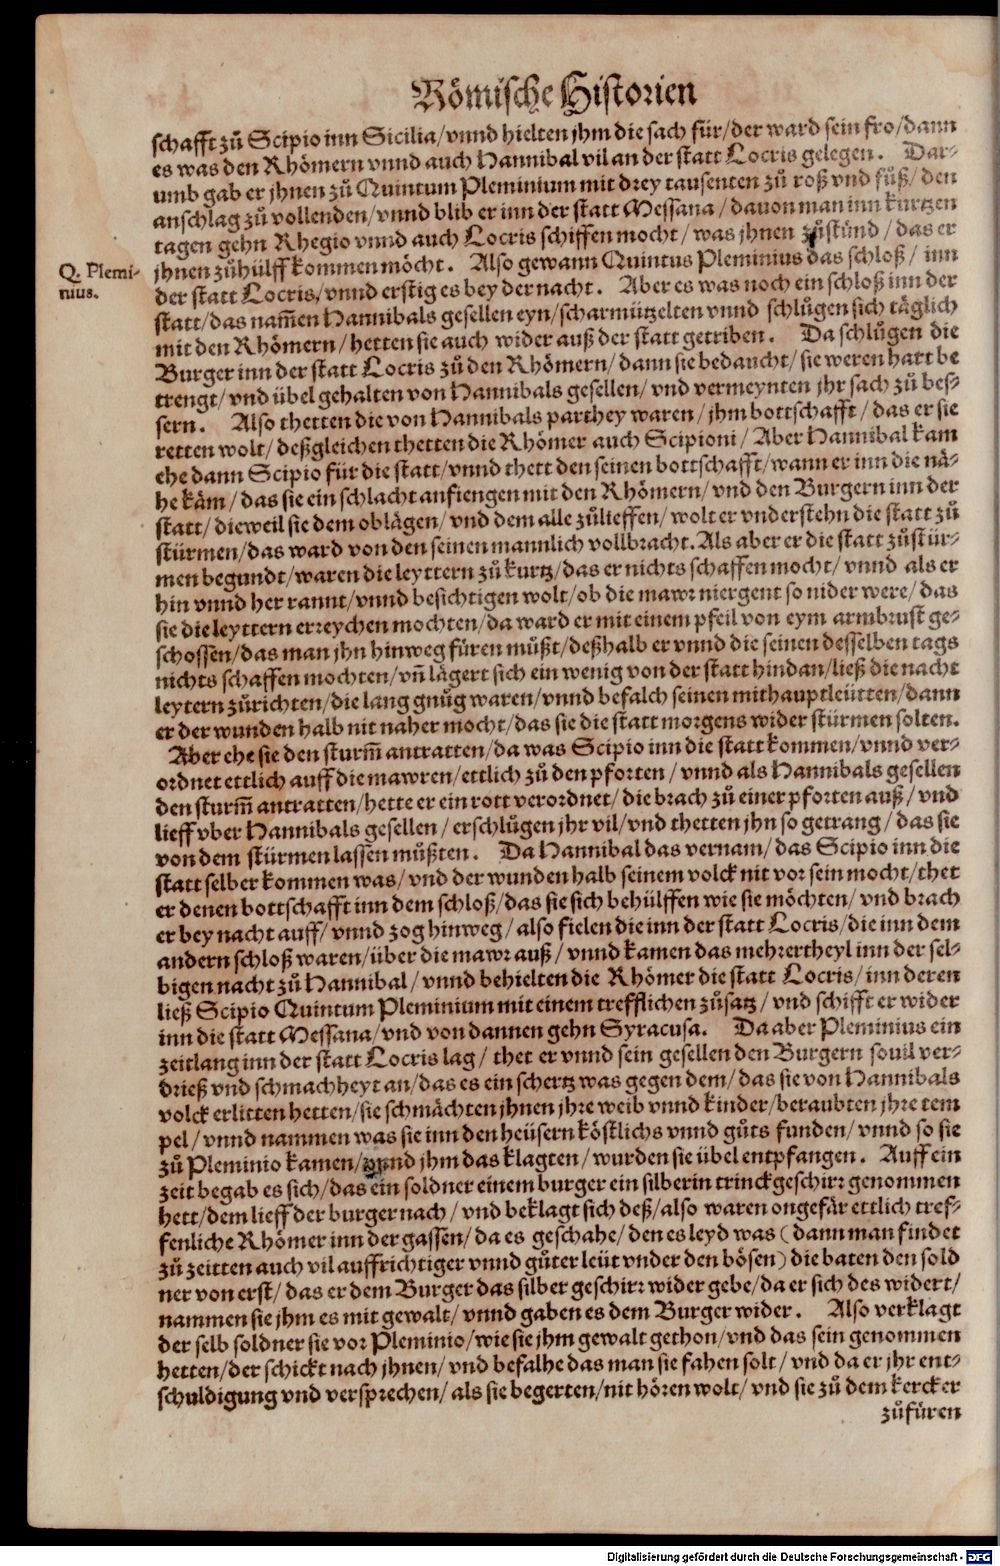 Römische Historien
schafft zů Scipio inn Sicilia/vnnd hielten jhm die sach für/der ward sein fro/dann
es was den Rhömern vnnd auch Hannibal vil an der statt Locris gelegen. Dar-
umb gab er jhnen zů Quintum Pleminium mit drey tausenten zů roß vnd fůß/den
anschlag zů vollenden/vnnd blib er inn der statt Messana/dauon man inn kurtzen
tagen gehn Rhegio vnnd auch Locris schiffen mocht/was jhnen zůstůnd/das er
Q. Plemi-
nius.
jhnen zůhülff kommen möcht. Also gewann Quintus Pleminius das schloß/inn
der statt Locris/vnnd erstig es bey der nacht. Aber es was noch ein schloß inn der
statt/das nam̃en Hannibals gesellen eyn/scharmützelten vnnd schlůgen sich täglich
mit den Rhömern/hetten sie auch wider auß der statt getriben. Da schlůgen die
Burger inn der statt Locris zů den Rhömern/dann sie bedaucht/sie weren hart be
trengt/vnd übel gehalten von Hannibals gesellen/vnd vermeynten jhr sach zů bes-
sern. Also thetten die von Hannibals parthey waren/jhm bottschafft/das er sie
retten wolt/deßgleichen thetten die Rhömer auch Scipioni/Aber Hannibal kam
ehe dann Scipio für die statt/vnnd thett den seinen bottschafft/wann er inn die nä-
he käm/das sie ein schlacht anfiengen mit den Rhömern/vnd den Burgern inn der
statt/dieweil sie dem oblägen/vnd dem alle zůlieffen/wolt er vnderstehn die statt zů
stürmen/das ward von den seinen mannlich vollbracht. Als aber er die statt zůstür-
men begundt/waren die leyttern zů kurtz/das er nichts schaffen mocht/vnnd als er
hin vnnd her rannt/vnnd besichtigen wolt/ob die mawr niergent so nider were/das
sie die leyttern erreychen mochten/da ward er mit einem pfeil von eym armbrust ge-
schossen/das man jhn hinweg füren můßt/deßhalb er vnnd die seinen desselben tags
nichts schaffen mochten/vñ lägert sich ein wenig von der statt hindan/ließ die nacht
leytern zůrichten/die lang gnůg waren/vnnd befalch seinen mithauptleütten/dann
er der wunden halb nit naher mocht/das sie die statt morgens wider stürmen solten.
Aber ehe sie den sturm̃ antratten/da was Scipio inn die statt kommen/vnnd ver-
ordnet ettlich auff die mawren/ettlich zů den pforten/vnnd als Hannibals gesellen
den sturm̃ antratten/hette er ein rott verordnet/die brach zů einer pforten auß/vnd
lieff vber Hannibals gesellen/erschlůgen jhr vil/vnd thetten jhn so getrang/das sie
von dem stürmen lassen můßten. Da Hannibal das vernam/das Scipio inn die
statt selber kommen was/vnd der wunden halb seinem volck nit vor sein mocht/thet
er denen bottschafft inn dem schloß/das sie sich behülffen wie sie möchten/vnd brach
er bey nacht auff/vnnd zog hinweg/also fielen die inn der statt Locris/die inn dem
andern schloß waren/über die mawr auß/vnnd kamen das mehrertheyl inn der sel-
bigen nacht zů Hannibal/vnnd behielten die Rhömer die statt Locris/inn deren
ließ Scipio Quintum Pleminium mit einem trefflichen zůsatz/vnd schifft er wider
inn die statt Messana/vnd von dannen gehn Syracusa. Da aber Pleminius ein
zeitlang inn der statt Locris lag/thet er vnnd sein gesellen den Burgern souil ver-
drieß vnd schmachheyt an/das es ein schertz was gegen dem/das sie von Hannibals
volck erlitten hetten/sie schmächten jhnen jhre weib vnnd kinder/beraubten jhre tem
pel/vnnd nammen was sie inn den heüsern köstlichs vnnd gůts funden/vnnd so sie
zů Pleminio kamen/vnnd jhm das klagten/wurden sie übel entpfangen. Auff ein
zeit begab es sich/das ein soldner einem burger ein silberin trinckgeschirr genommen
hett/dem lieff der burger nach/vnd beklagt sich deß/also waren ongefär ettlich tref-
fenliche Rhömer inn der gassen/da es geschahe/den es leyd was (dann man findet
zů zeitten auch vil auffrichtiger vnnd gůter leüt vnder den bösen) die baten den sold
ner von erst/das er dem Burger das silber geschirr wider gebe/da er sich des widert/
nammen sie jhm es mit gewalt/vnnd gaben es dem Burger wider. Also verklagt
der selb soldner sie vor Pleminio/wie sie jhm gewalt gethon/vnd das sein genommen
hetten/der schickt nach jhnen/vnd befalhe das man sie fahen solt/vnd da er jhr ent-
schuldigung vnd versprechen/als sie begerten/nit hören wolt/vnd sie zů dem kercker
zůfüren
Digitalisierung gefördert durch die Deutsche Forschungsgemeinschaft - DFG